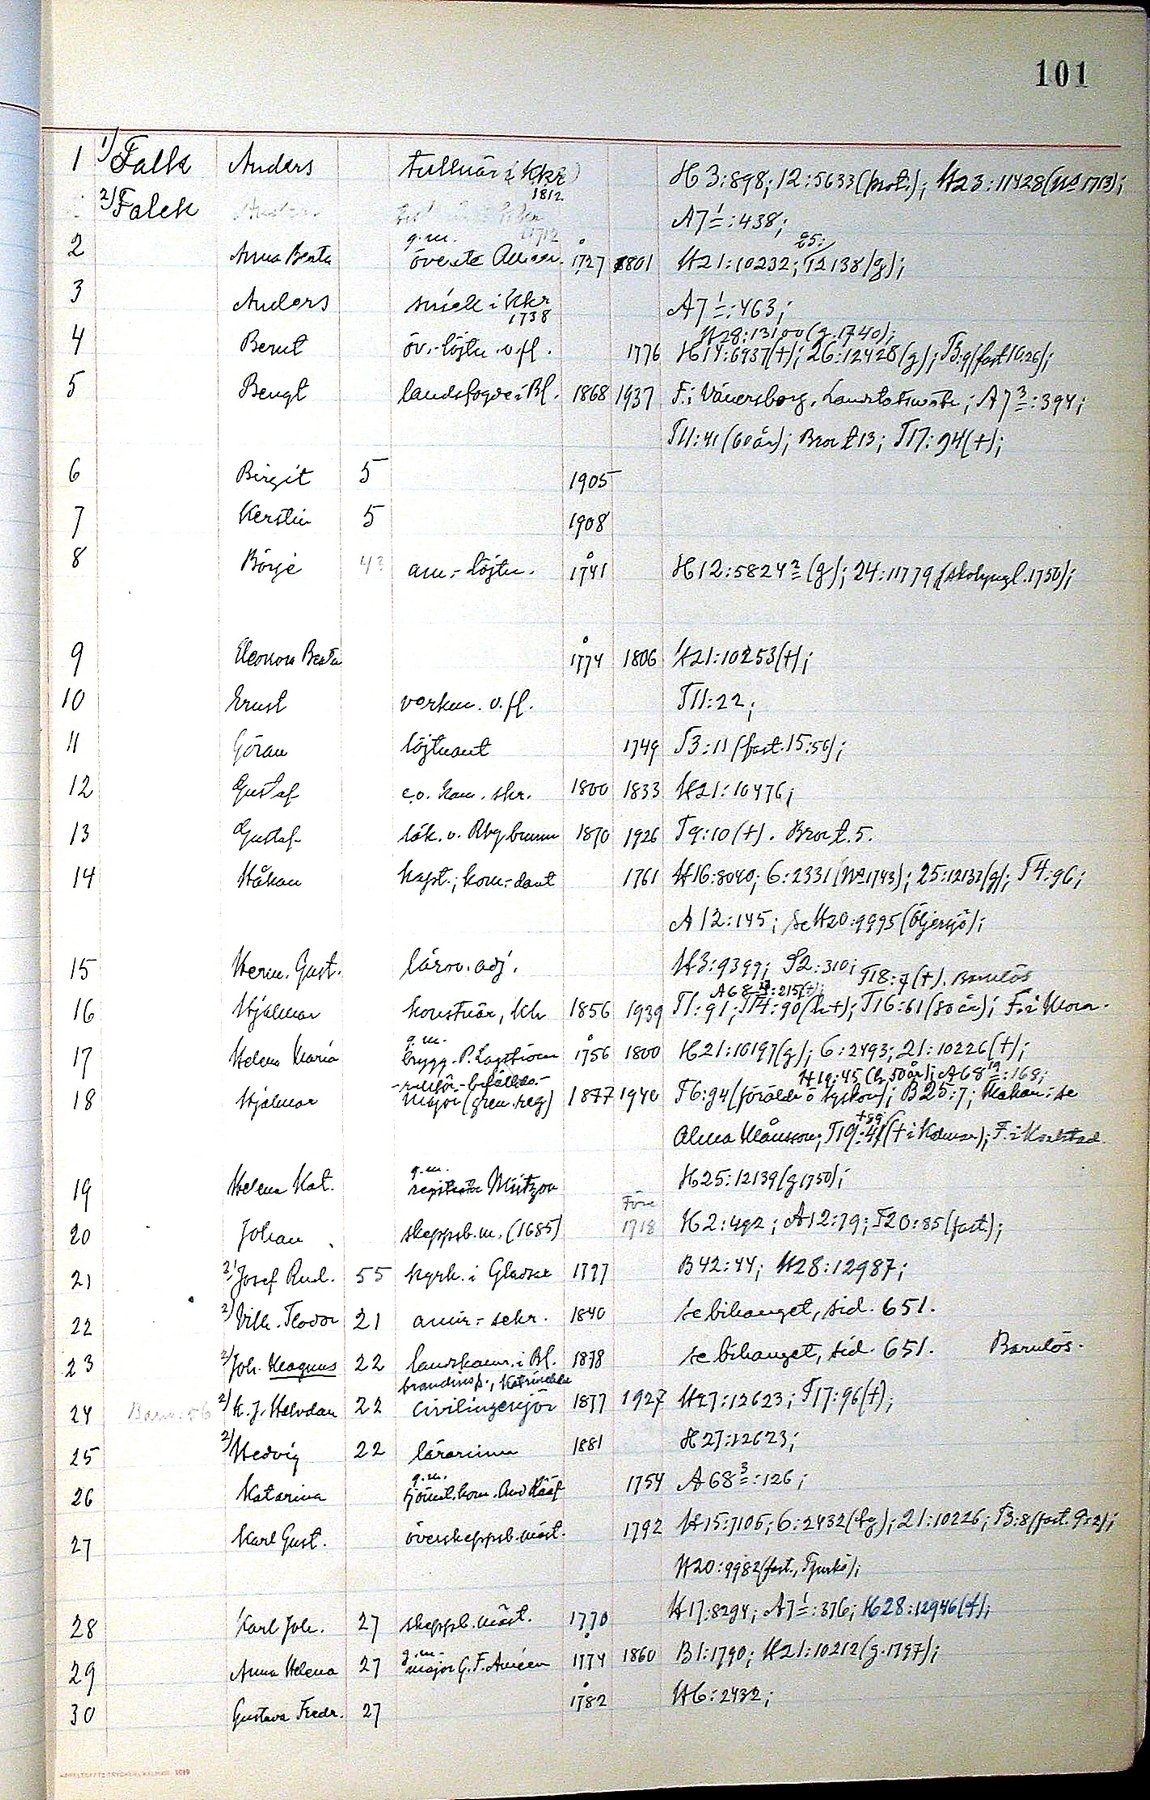 101
1 1) Falk Anders tullnär i Kkr H3:898; 12:5633 (prot.); H23:11428 (No 1713);
2) Falck 1812 A7 1:438;
2 Anna Berta g.m. överste 1727 1801 H21:10232; 25: T2138 (g);
3 Anders smed i Kkr 1738 A7 1:463;
H28:13100 (g.1740);
4 Bernt öv.-löjtn. v. fl. 1776 H14:6937 (+); 26:12428 (g); T3:9 (fast 16:26);
5 Bengt landsfogde i Bl. 1868 1937 F. i Vänersborg, ; A7 3:394;
T11:41 (60 år); Bror t. 13; T17:94 (+);
6 Birgit 5 1905
7 Kerstin 5 1908
8 Börje 4? am.-löjtn. 1741 H12:5824 2 (g); 24:11779 (skolyngl. 1750);
9 Eleonora Beata 1774 1806 H21:10253 (+);
10 Ernst verkm. v. fl. T11:22;
11 Göran löjtnant 1749 T3:11 (fast. 15:56);
12 Gustaf e.o. kam. skr. 1800 1833 H21:10476;
13 Gustaf läk. v. Rbg brunn 1870 1926 T9:10 (+). Bror t. 5.
14 Håkan kapt.; kom.-dant 1761 H16:8040; 6:2331 (No 1743); 25:12137 (g); T4:96;
A12:145; se H20:9995 (Öljersjö);
15 Herm. Gust. lärov. adj. H3:9399; S2:310; T18:7 (+). Barnlös
A68 :215 (+);
16 Hjalmar konstnär, Kh 1856 1939 T1:91; T14:90 (h+); T16:61 (80 år); F. i
17 Helena Maria g.m. brygg. P. Lagström 1756 1800 H21:10197 (g); 6:2493; 21:10226 (+);
H14:45 (h. 50 år); A68 12:168;
18 Hjalmar major (gren. reg) 1877 1940 T6:94 (föräldr o syskon); B25:7; Makan: se
Alma Månsson; T19:41 (+ i Kalmar); F. i Karlstad
19 Helena Kat. g.m. H25:12139 (g 1750);
20 Johan skeppsb.m. (1685) Före 1718 H2:492; A12:79; T20:85 (fast);
21 2) Josef Rud. 55 kyrk. i 1797 B42:44; H28:12987;
22 2) Vilh. Teodor 21 amir.-sekr. 1840 se bihanget, sid. 651.
23 2) Joh. Magnus 22 landskam. i Bl. 1878 se bihanget, sid. 651. Barnlös.
24 Barn: 56 2) K. J. Halvdan 22 brandinsp., Katrineholm civilingenjör 1877 1927 H27:12623; T17:96 (+);
25 2) Hedvig 22 lärarinna 1881 H27:12623;
26 Katarina g.m. 1754 A68 3:126;
27 Karl Gust. överskeppsb.mäst. 1792 H15:7105; 6:2432 (tg); 21:10226; T3:8 (fast. 9:2);
H20:9982 (fast., Tjurkö);
28 Karl Joh. 27 skeppsb.mäst. 1770 H17:8294; A7 1:376; H28:12946 (+);
29 Anna Helena 27 g.m. major G.F. Améen 1774 1860 B1:1790; H21:10212 (g.1797);
30 Gustava Fredr. 27 1782 H6:2432;